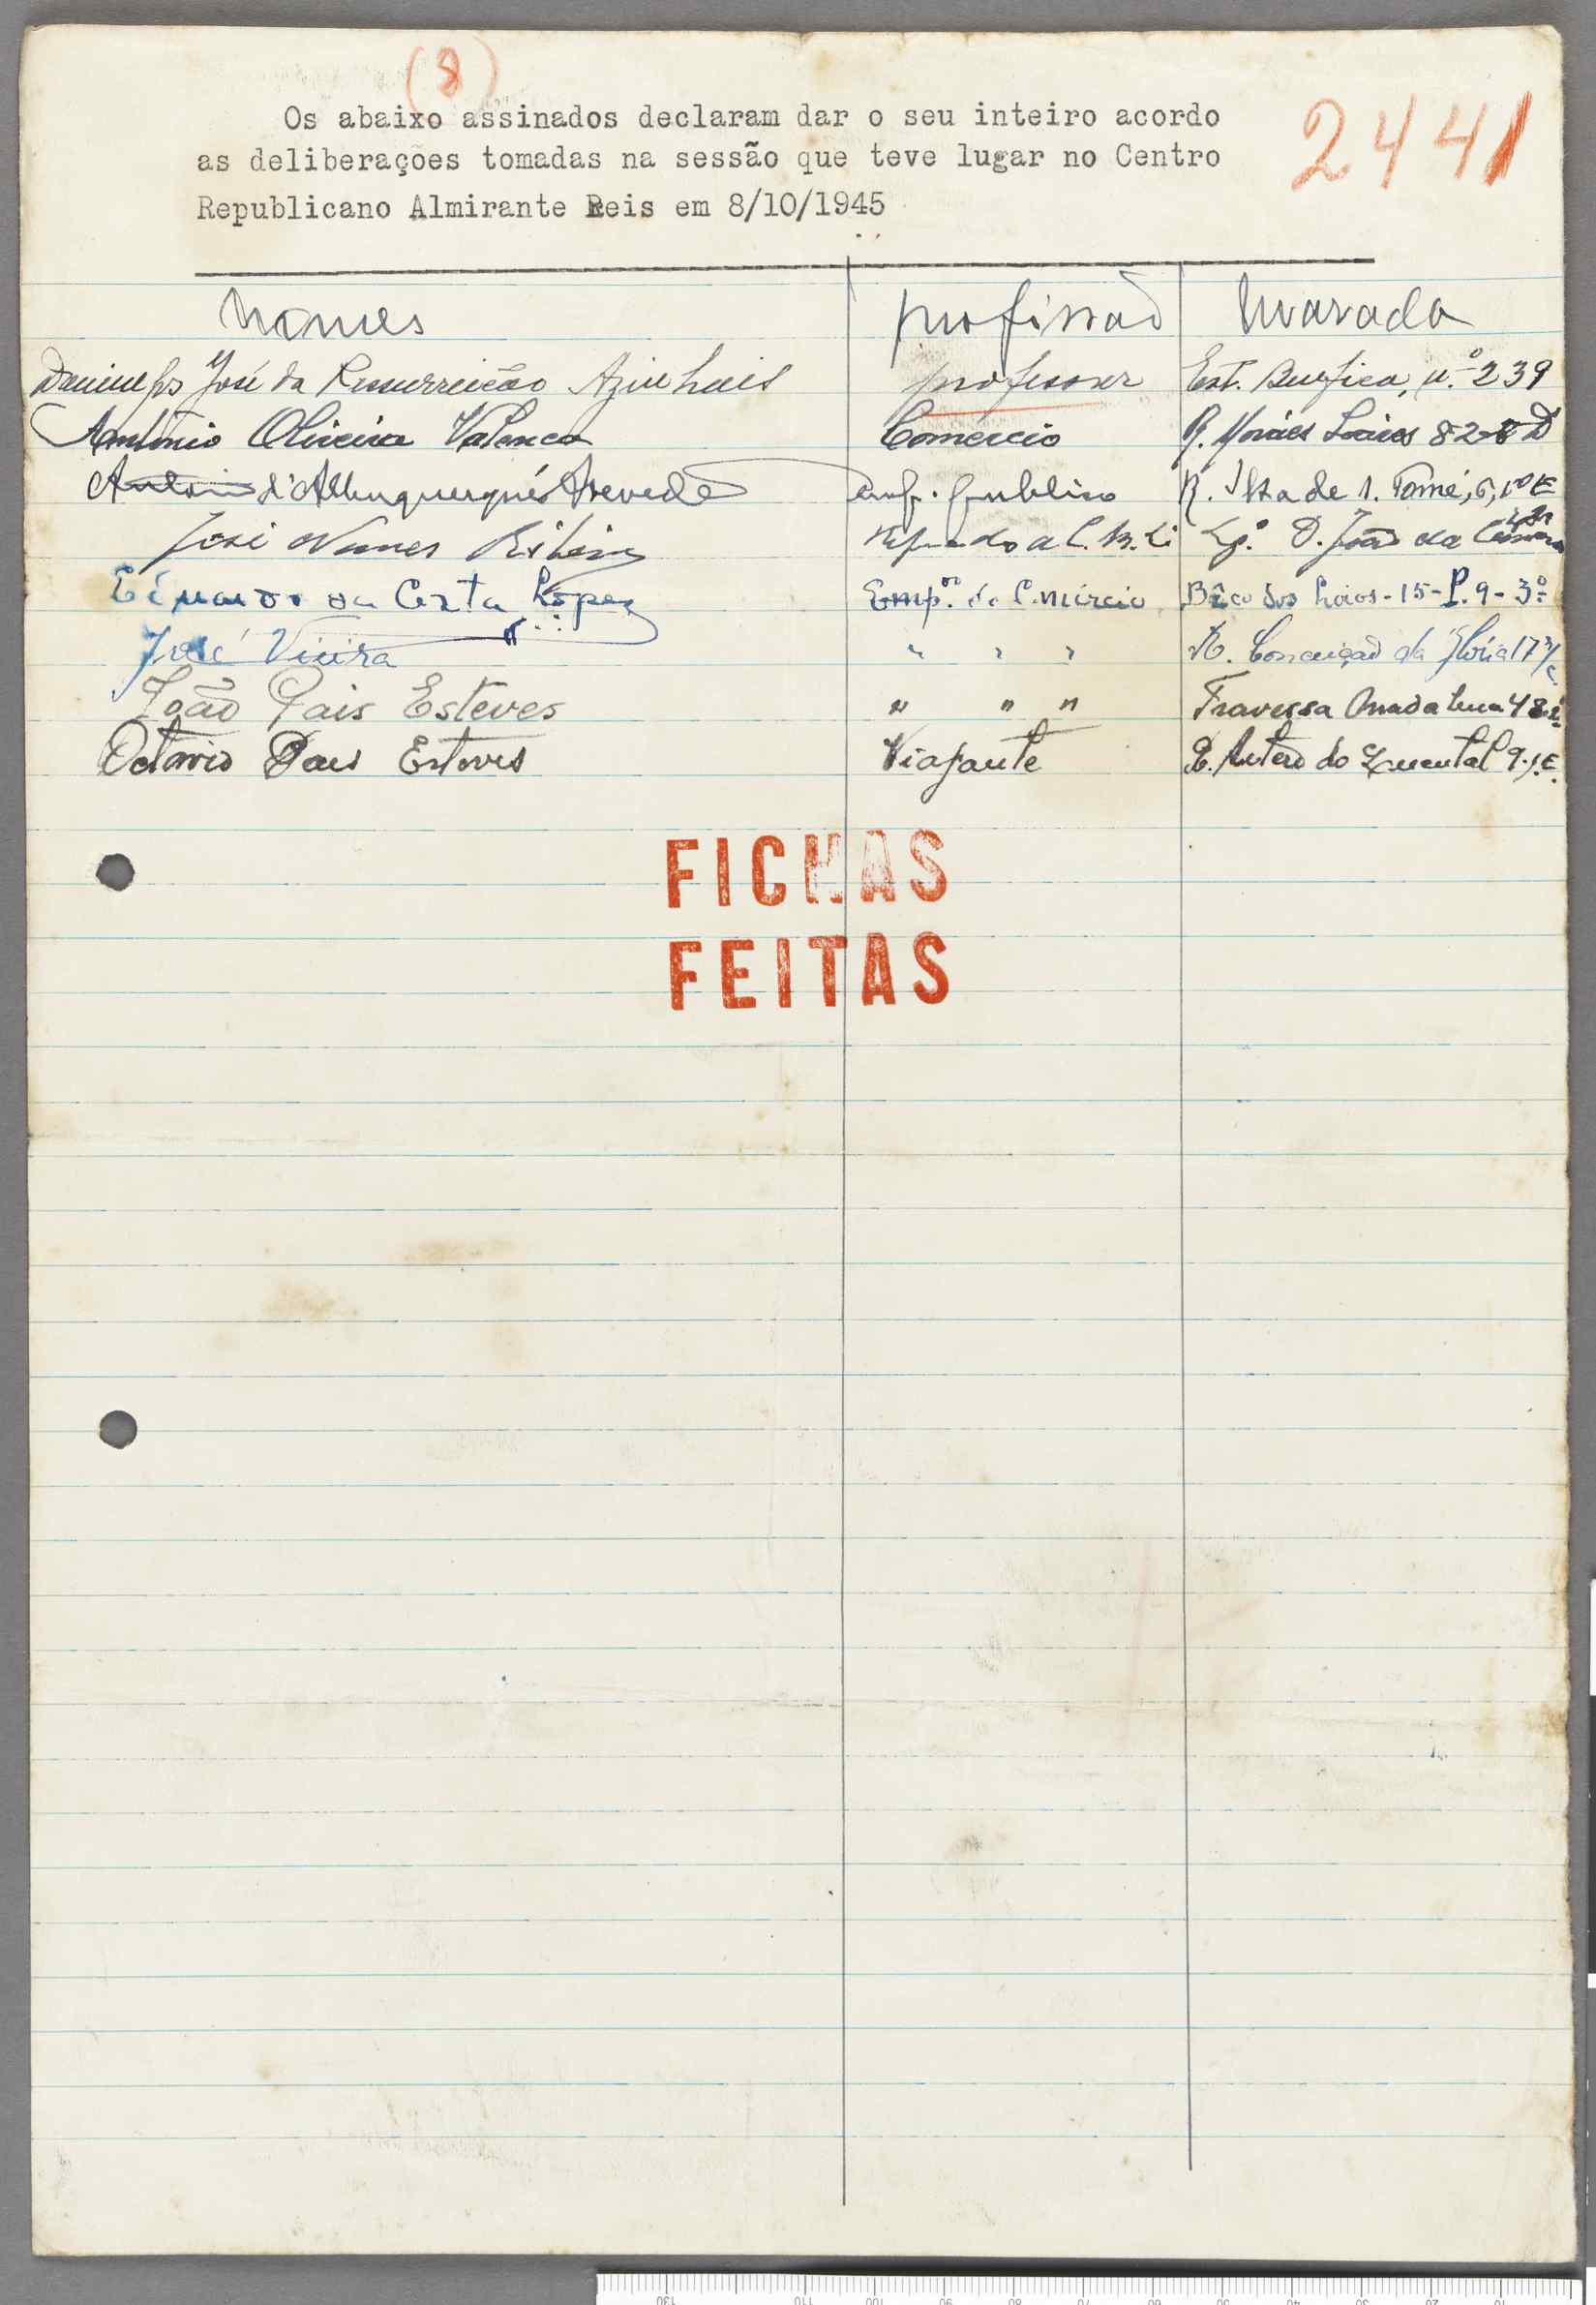 (8)
2441
Os abaixo assinados declaram dar o seu inteiro acordo
as deliberações tomadas na sessão que teve lugar no Centro
Republicano Almirante Reis em 8/10/1945
Nomes profissão Morada
José da Ressurreição professor Est. Benfica, n.º 239
António Oliveira Valença Comércio R. Moraes Soares 82
d'Albuquerque Azevedo público R. Ilha de S. Tomé, 6, 1º E
José Nunes Lg.º D. João da Câmara
da Costa Lopes Emp.º de Comércio Bêco dos Loios - 15 - P. 9 - 3º
José Vieira " " " R. Conceição da Glória 17
João Pais Esteves " " " Travessa
Octavio Pais Esteves Viajante R. Antero do Quental 9
FICHAS
FEITAS